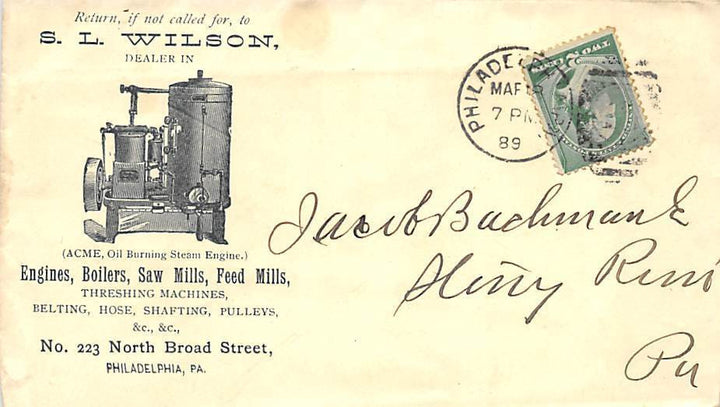 Return, if not called for, to
S. L. WILSON,
DEALER IN
(ACME, Oil Burning Steam Engine.)
Engines, Boilers, Saw Mills, Feed Mills,
THRESHING MACHINES,
BELTING, HOSE, SHAFTING, PULLEYS,
&c., &c.,
No. 223 North Broad Street,
PHILADELPHIA, PA.
PHILADELPHIA
MAR
7 PM
89
TWO
Jacob Bachman
Pa